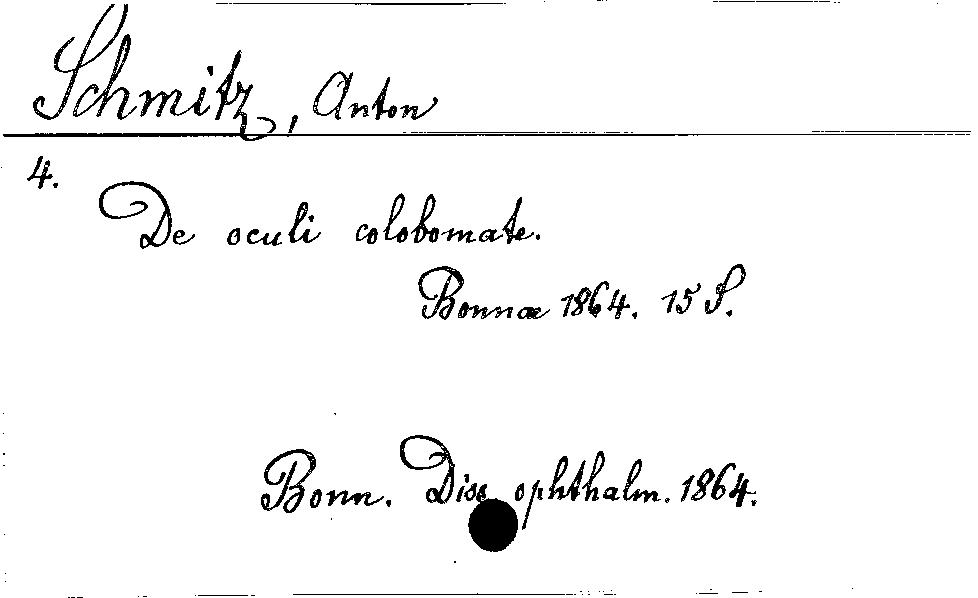 Schmitz, Anton
4.
De oculi colobomate.
Bonnae 1864. 15 S.
Bonn. Diss. ophthalm. 1864.